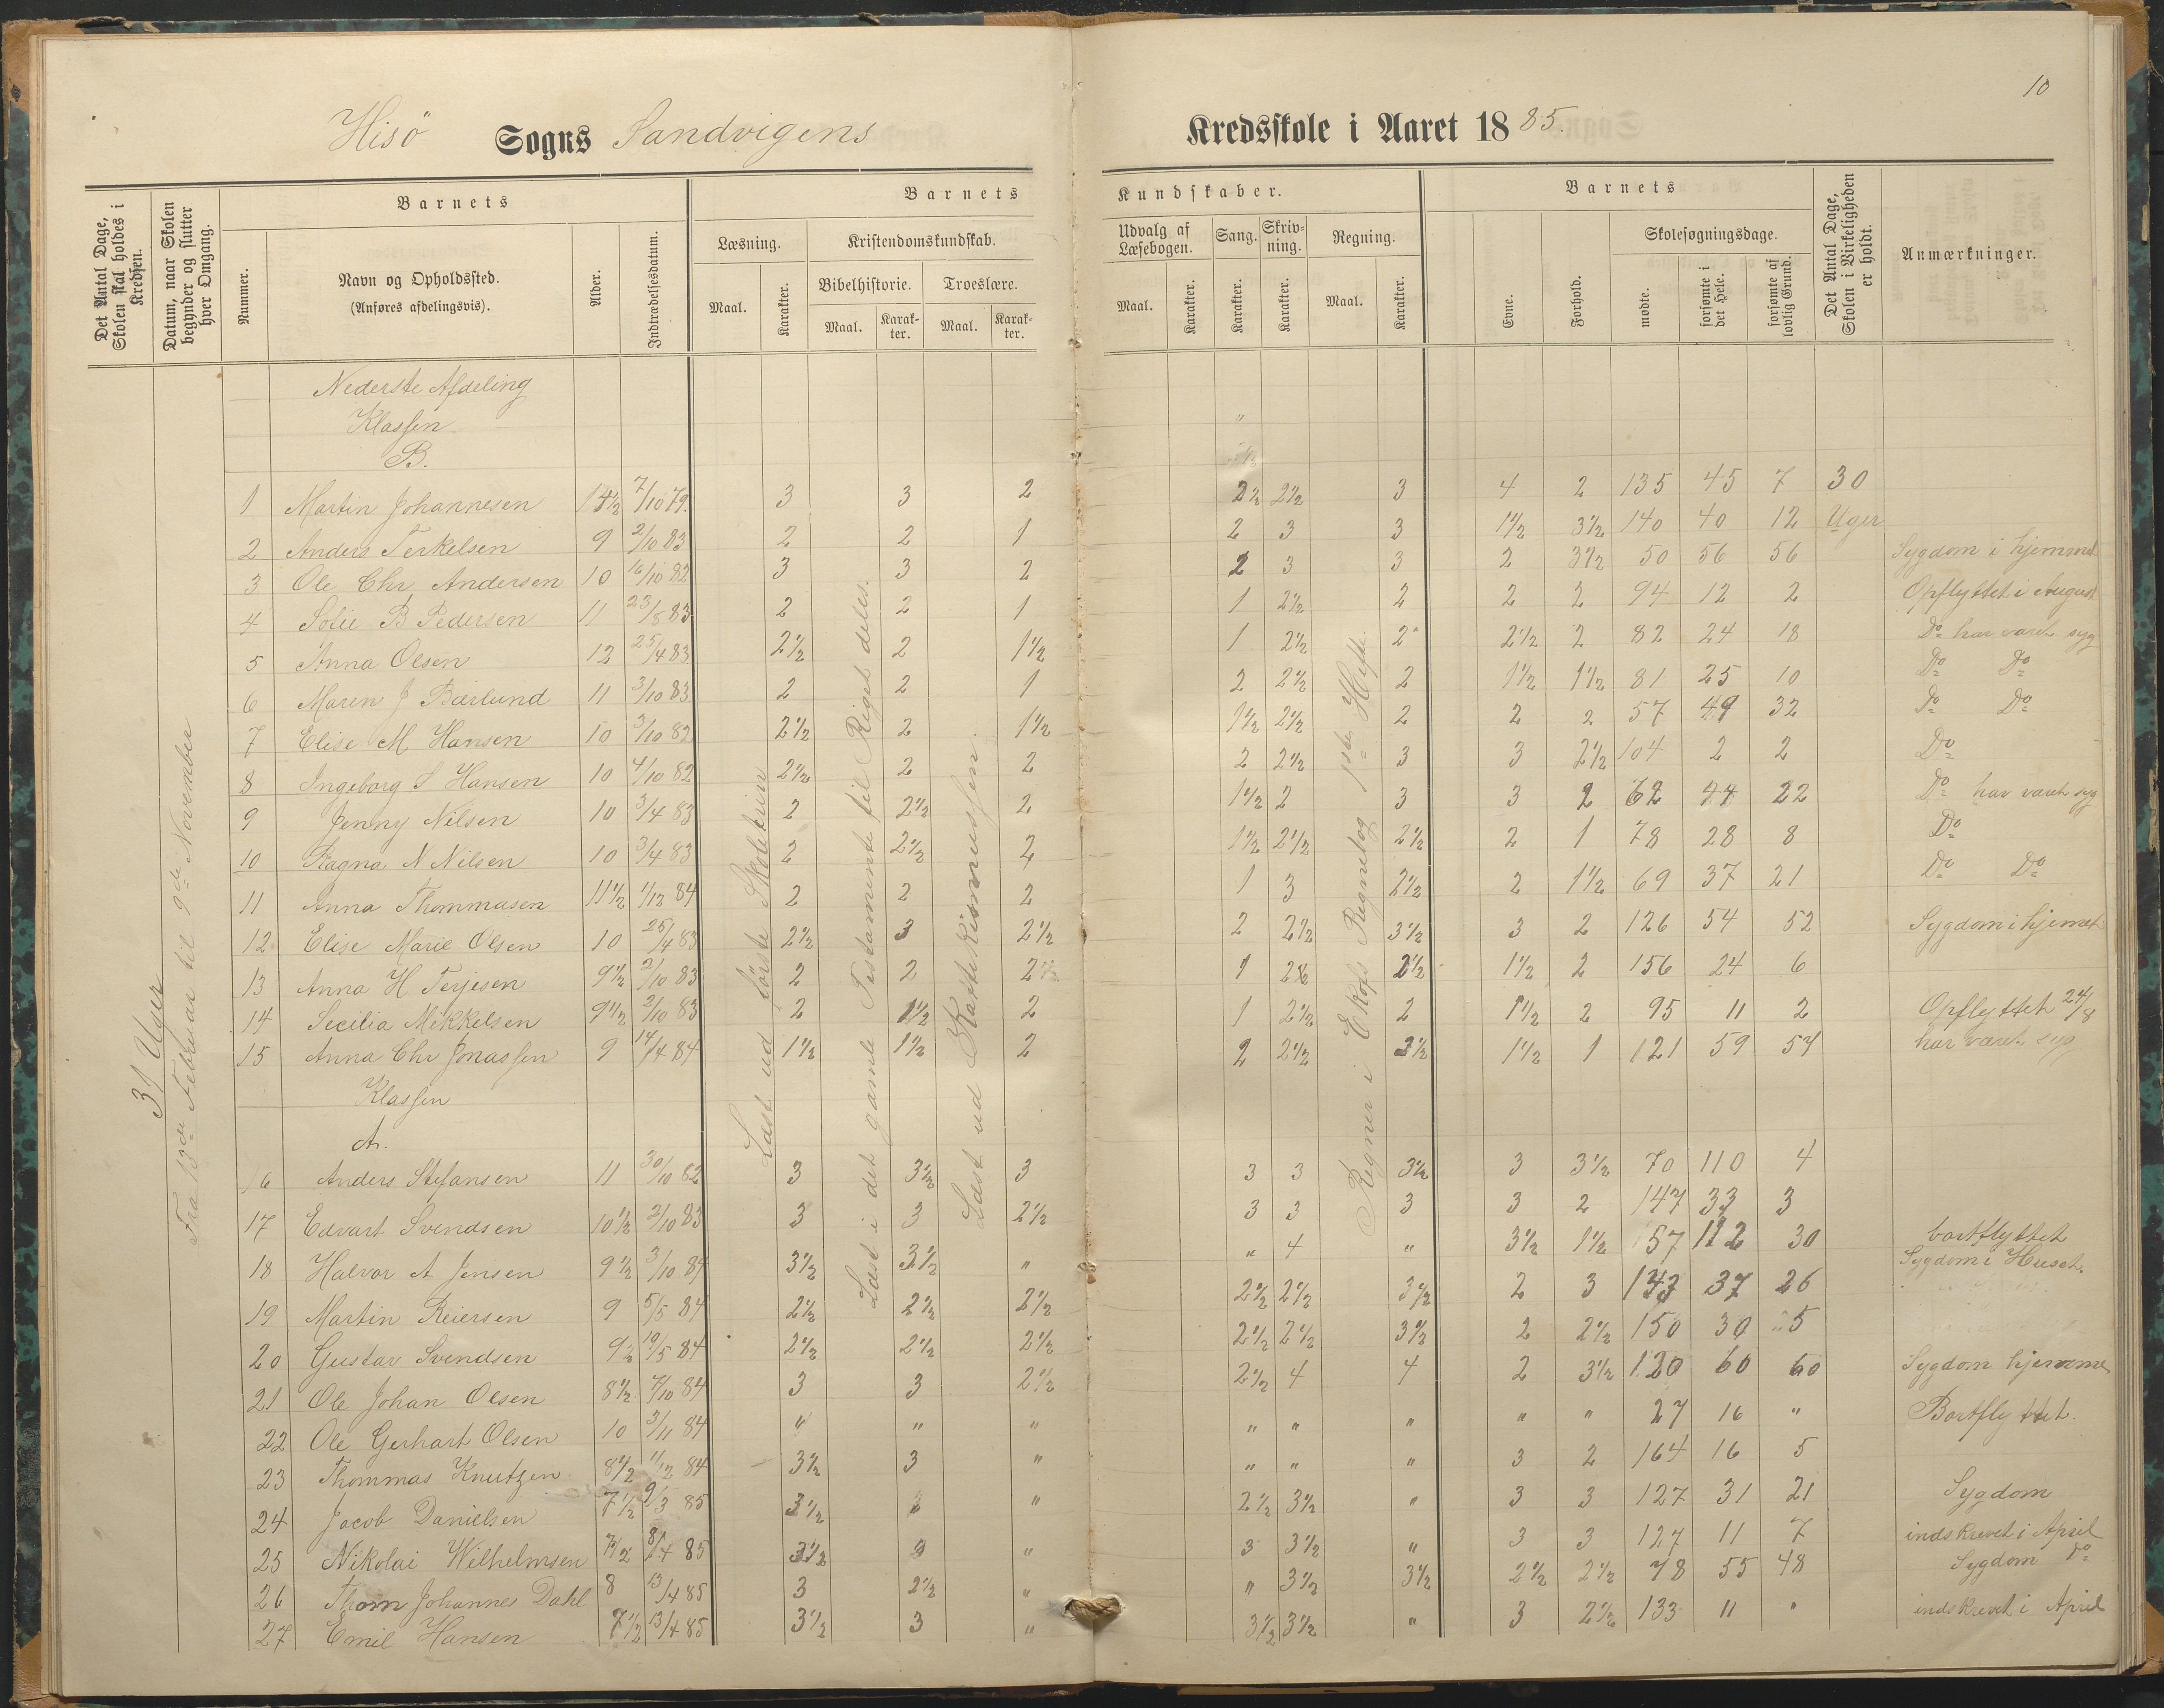 10
Hisö Sogns Sandvigens Kredsskole i Aaret 1885.
Det Antal Dage, Skolen skal holdes i Kredsen.
Datum, naar Skolen begynder og slutter hver Omgang.
Barnets
Nummer.
Navn og Opholdssted.
(Anføres afdelingsvis).
Alder.
Indtrædelsesdatum.
Barnets Kundskaber.
Læsning.
Maal.
Karakter.
Kristendomskundskab.
Bibelhistorie.
Maal.
Karakter.
Troeslære.
Maal.
Karakter.
Udvalg af Læsebogen.
Maal.
Karakter.
Sang.
Karakter.
Skrivning.
Karakter.
Regning.
Maal.
Karakter.
Barnets
Evne.
Forhold.
Skolesøgningsdage.
mødte.
forsømte i det Hele.
forsømte af lovlig Grund.
Det Antal Dage, Skolen i Virkeligheden er holdt.
Anmærkninger.
31 Uger
Fra 13de Februar til 9de November
Læst ud første Skoletrin
Læst i det gamle Testamente til Rigets deles.
Læst ud Kattekismussen.
Regner i Ekofs Regnebog 1ste Hefte.
Nederste Afdeling
Klassen
B.
1 Martin Johannesen 14½ 7/10 79. 3 3 2 2½ 2½ 3 4 2 135 45 7 30
2 Anders Terkelsen 9 2/10 83 2 2 1 2 3 3 1½ 3½ 140 40 12 Uger
3 Ole Chr Andersen 10 16/10 82 3 3 2 2 3 3 2 3½ 50 56 56 Sygdom i hjemmet
4 Sofie B Pedersen 11 23/8 83 2 2 1 1 2½ 2 2 2 94 12 2 Opflyttet i August
5 Anna Olsen 12 25/4 83 2½ 2 1½ 1 2½ 2 2½ 2 82 24 18 Do har været syg
6 Maren J Bærlund 11 3/10 83 2 2 1 2 2½ 2 1½ 1½ 81 25 10 Do Do
7 Elise M Hansen 10 3/10 82 2½ 2 1½ 1½ 2½ 2 2 2 57 49 32 Do Do
8 Ingeborg S Hansen 10 4/10 82 2½ 2 2 2 2½ 3 3 2½ 104 2 2 Do
9 Jenny Nilsen 10 3/4 83 2 2½ 2 1½ 2 3 3 2 62 44 22 Do har været syg
10 Ragna N Nilsen 10 3/4 83 2 2½ 2 1½ 2½ 2½ 2 1 78 28 8 Do
11 Anna Thommasen 11½ 1/12 84 2 2 2 1 3 2½ 2 1½ 69 37 21 Do Do
12 Elise Marie Olsen 10 25/4 83 2½ 3 2½ 2 2½ 3½ 3 2 126 54 52 Sygdom i hjemet
13 Anna H Terjesen 9½ 2/10 83 2 2 2 1 2½ 2½ 1½ 2 156 24 6
14 Secilia Mikkelsen 9½ 2/10 83 2 1½ 2 1 2½ 2 1½ 2 95 11 2 Opflyttet 24/8
15 Anna Chr Jonassen 9 14/4 84 1½ 1½ 2 2 2½ 3½ 1½ 1 121 59 57 har været syg
Klassen
A.
16 Anders Stefansen 11 30/10 82 3 3½ 3 3 3 3½ 3 3½ 70 110 4
17 Edvart Svendsen 10½ 2/10 83 3 3 2½ 3 3 3 3 2 147 33 3
18 Halvor A Jensen 9½ 3/10 84 3½ 3½ " " 4 " 3½ 1½ 57 112 30 bortflyttet Sygdom i Huset.
19 Martin Reiersen 9 5/5 84 2½ 2½ 2½ 2½ 2½ 3½ 2 3 143 37 26
20 Gustav Svendsen 9½ 10/5 84 2½ 2½ 2½ 2½ 2½ 3½ 2 2½ 150 30 5
21 Ole Johan Olsen 8½ 7/10 84 3 3 2½ 2½ 4 4 2 3½ 120 60 60 Sygdom hjemme
22 Ole Gerhart Olsen 10 3/11 84 " " " " " " " " 27 16 " Bortflyttet.
23 Thommas Knutzen 8½ 11/12 84 3½ 3 " " " " 3 2 164 16 5
24 Jacob Danielsen 7½ 9/3 85 3½ " 2½ 3½ " 3 3 127 31 21 Sygdom
25 Nikolai Wilhelmsen 7½ 8/4 85 3½ 3 " 3 3½ " 3 3 127 11 7 indskrevet i April
26 Thom Johannes Dahl 8 13/4 85 3 2½ " " 3½ 3½ 2½ 2½ 78 55 48 Sygdom Do
27 Emil Hansen 7½ 13/4 85 3½ 3 " 3½ 3½ " 3 2½ 133 11 " indskrevet i April